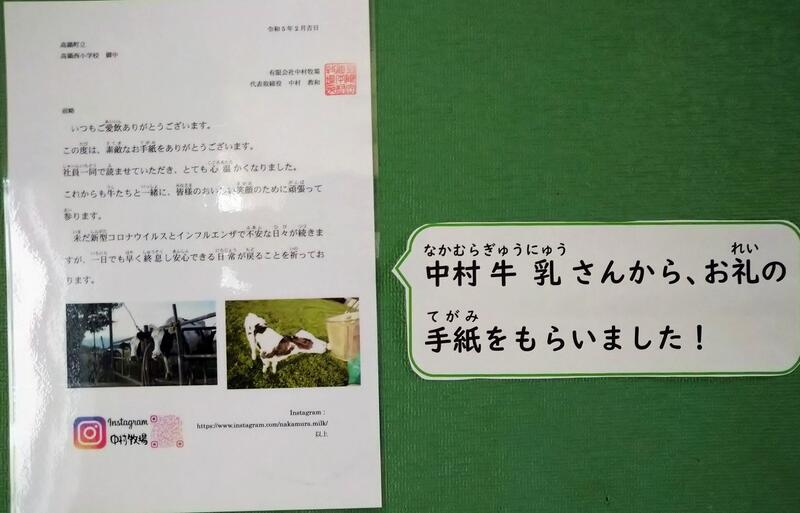 令和5年2月吉日
高鍋町立
高鍋西小学校 御中
有限会社中村牧場
代表取締役 中村 教和
前略
いつもご愛飲ありがとうございます。
この度は、素敵なお手紙をありがとうございます。
社員一同で読ませていただき、とても心温かくなりました。
これからも牛たちと一緒に、皆様のおいしい笑顔のために頑張って
参ります。
未だ新型コロナウイルスとインフルエンザで不安な日々が続きま
すが、一日でも早く終息し安心できる日常が戻ることを祈ってお
ります。
Instagram
中村牧場
Instagram：
https://www.instagram.com/nakamura.milk/
以上
なかむらぎゅうにゅう れい
中村牛乳さんから、お礼の
てがみ
手紙をもらいました！